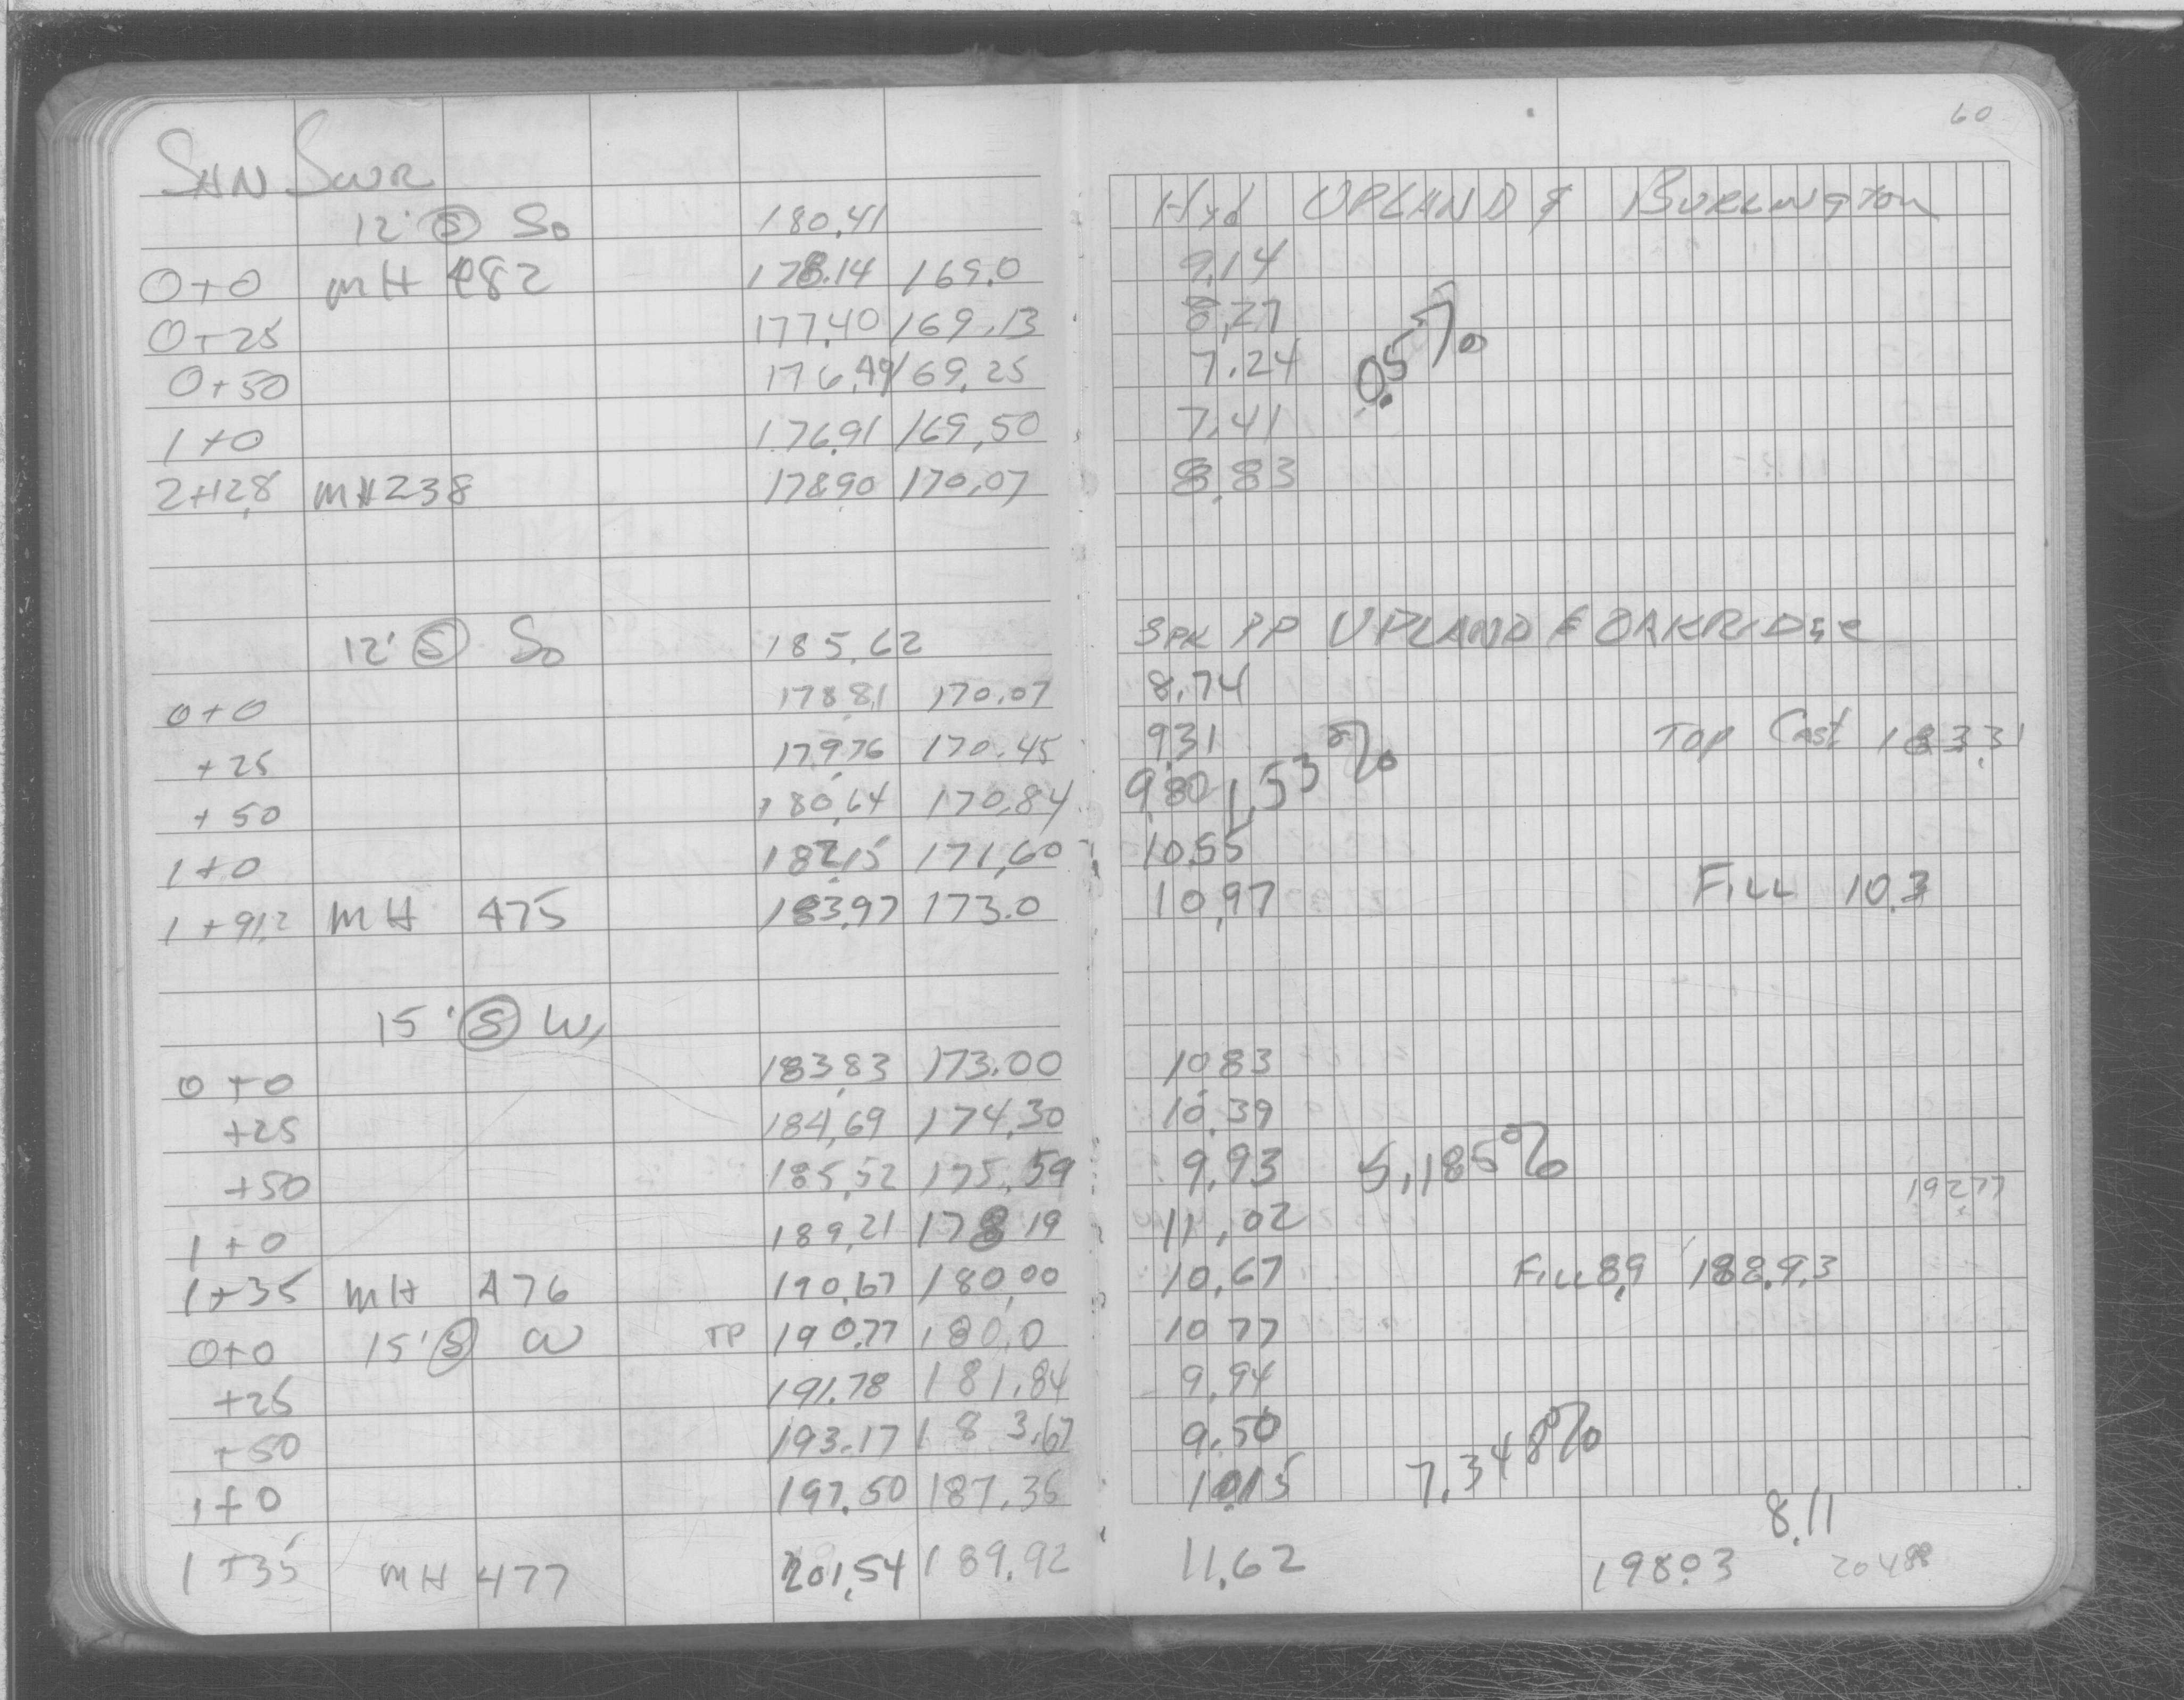 60
SAN SWR
12' Ⓢ So 180.41 Hyd UPLAND & BURLINGTON
0+0 MH 482 178.14 169.0 9.14
0+25 177.40 169.13 8.27
0+50 176.49 169.25 7.24 0.5%
1+0 176.91 169.50 7.41
2+12.8 MH 238 178.90 170.07 8.83
12' Ⓢ So 185.62 SPK PP UPLAND & OAKRIDGE
0+0 178.81 170.07 8.74
+25 179.76 170.45 9.31 TOP Cast 183.31
+50 180.64 170.84 9.80 1.53%
1+0 182.15 171.60 10.55
1+91.2 MH 475 183.97 173.0 10.97 FILL 10.3
15' Ⓢ W,
0+0 183.83 173.00 10.83
+25 184.69 174.30 10.39
+50 185.52 175.59 9.93 5.185%
1+0 189.21 178 19 11.02 192.77
1+35 MH 476 190.67 180.00 10.67 FILL 8.9 188.93
0+0 15' Ⓢ W TP 190.77 180.0 10 77
+25 191.78 181.84 9.94
+50 193.17 183.67 9.50
1+0 197.50 187.35 10.15 7.348%
8.11
1+35 MH 477 201.54 189.92 11.62 198.03 204.88